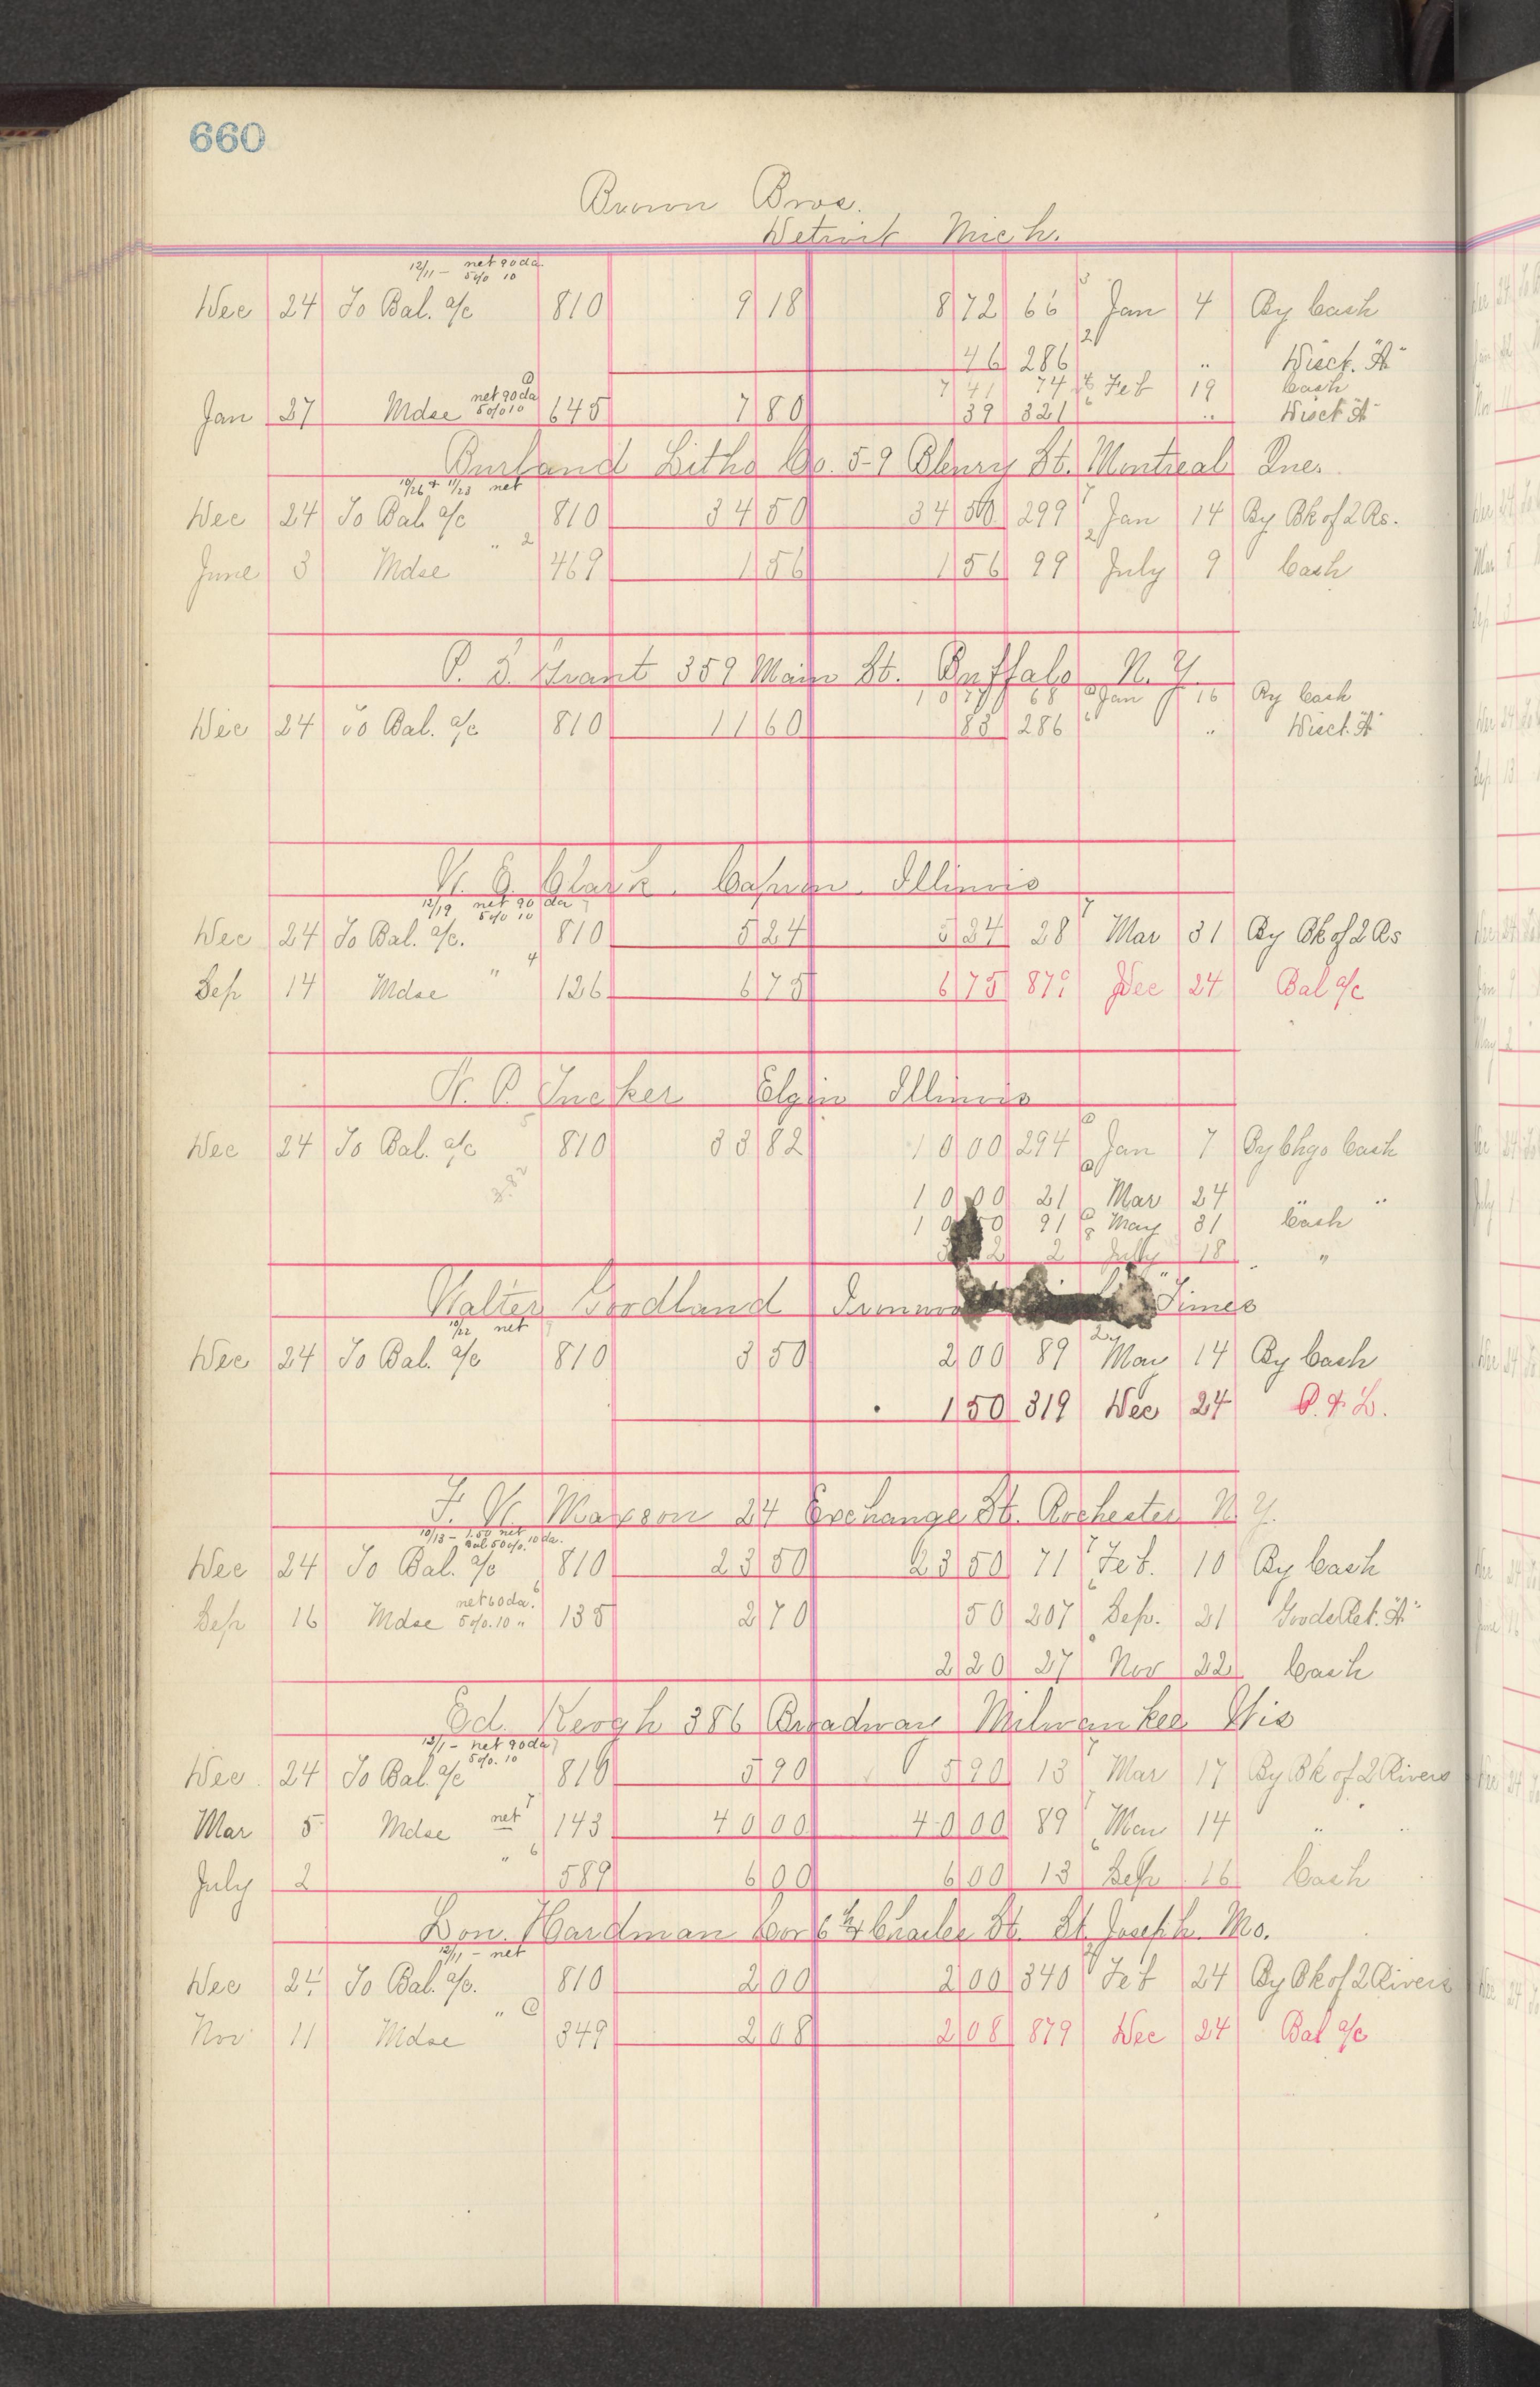 660
Brown Bros.
Detroit Mich.
12/11 - net 90 da
5% 10
Dec 24 To Bal. a/c 810 9 18 8 72 66 3 Jan 4 By Cash
46 286 2 " Disct. "A"
7 41 74 Feb 19 Cash
Jan 27 Mdse net 90 da 5% 10 645 7 80 39 321 6 " Disct "A"
Burland Litho Co. 5-9 Bleury St. Montreal Que.
10/26 + 11/23 net
Dec 24 To Bal. a/c 810 34 50 34 50 299 7 Jan 14 By Bk of 2 Rs.
June 3 Mdse " 2 469 1 56 1 56 99 2 July 9 Cash
P. S. Grant 359 Main St. Buffalo N.Y.
10 77 68 Jan 16 By Cash
Dec 24 To Bal. a/c 810 11 60 83 286 6 " Disct. "A"
W. G. Clark. Capron Illinois
12/19 net 90 da
5% 10
Dec 24 To Bal. a/c. 810 5 24 5 24 28 7 Mar 31 By Bk of 2 Rs
Sep 14 Mdse " 4 126 6 75 6 75 879 Dec 24 Bal a/c
W. P. Tucker Elgin Illinois
Dec 24 To Bal. a/c 810 33 82 10 00 294 Jan 7 By Chgo Cash
3.82
10 00 21 Mar 24 " "
10 00 91 May 31 Cash
2 2 July 18 "
Walter Goodland Times
10/22 net
Dec 24 To Bal. a/c 810 3 50 2 00 89 2 May 14 By Cash
1 50 319 Dec 24 P. & L.
F. W. Maxson 24 Exchange St. Rochester N.Y.
10/13 - 1.50 net
Bal 5%. 10 da.
Dec 24 To Bal. a/c 810 23 50 23 50 71 7 Feb. 10 By Cash
Sep 16 Mdse net 60 da. 5%. 10 " 6 135 2 70 50 207 6 Sep. 21 Goods Ret. "A"
2 20 27 Nov 22 Cash
Ed. Keogh 386 Broadway Milwaukee Wis
12/1 - net 90 da
5%. 10
Dec. 24 To Bal. a/c 810 5 90 5 90 13 7 Mar 17 By Bk of 2 Rivers
Mar 5 Mdse net 7 143 40 00 40 00 89 7 May 14 " "
July 2 " 6 589 6 00 6 00 13 6 Sep 16 Cash
Don. Hardman Cor 6th & Charles St. St. Joseph. Mo.
12/11 - net
Dec 24 To Bal. a/c. 810 2 00 2 00 340 Feb 24 By Bk of 2 Rivers
Nov 11 Mdse " 349 2 08 2 08 879 Dec 24 Bal a/c